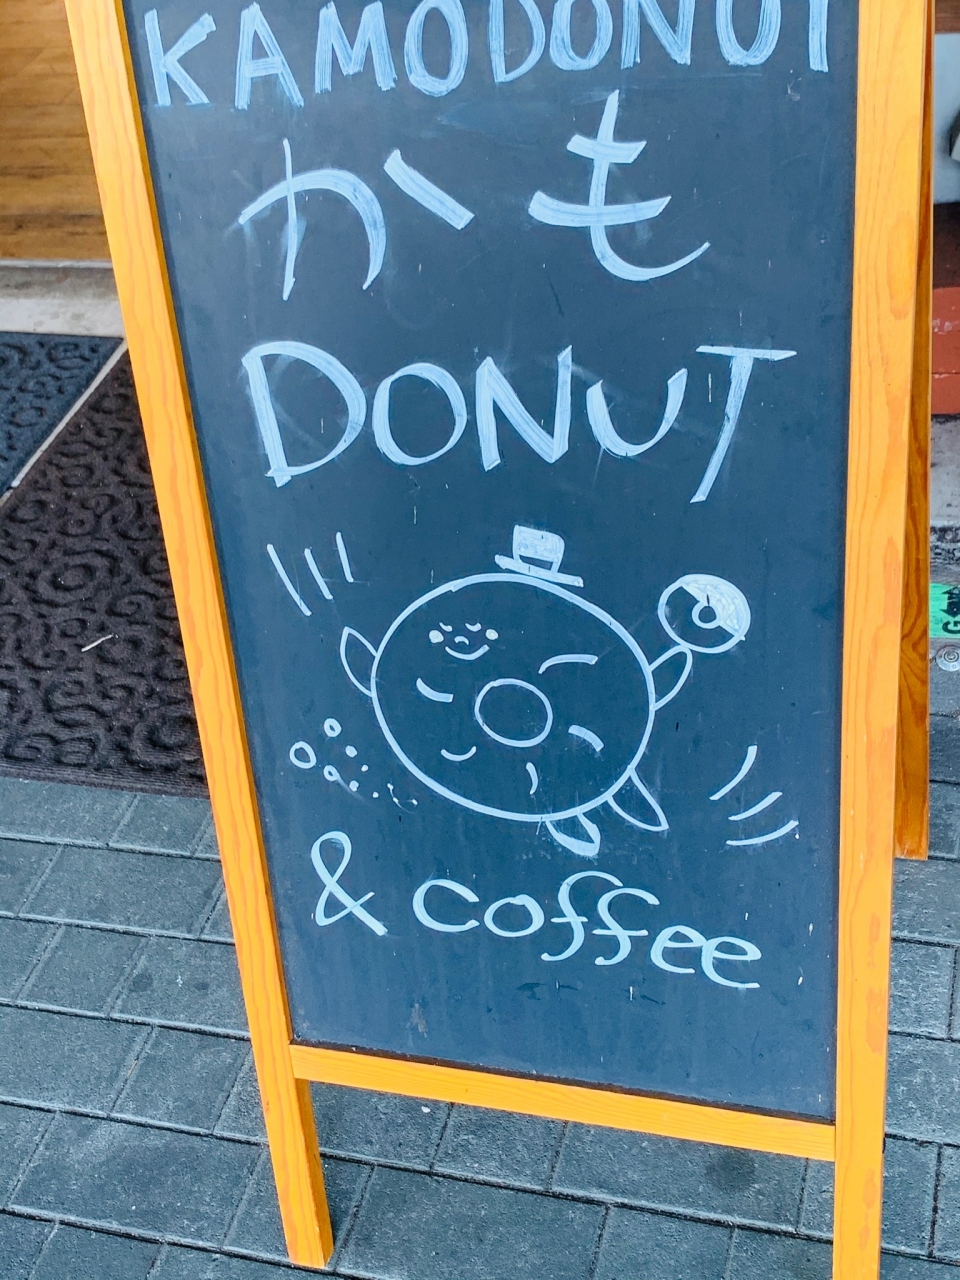 KAMODONUT
かも
DONUT
& coffee